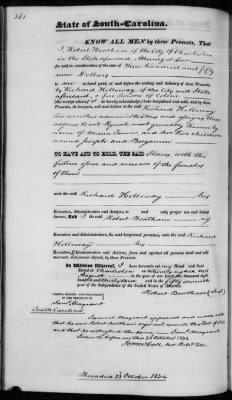 State of South-Carolina.
KNOW ALL MEN by these Presents, That
I, Robert Bentham of the City of Charleston
in the State aforesaid, Attorney at Law
for and in consideration of the sum of Three hundred and fifty
nine Dollars
to me in hand paid, at and before the sealing and delivery of these Presents,
by Richard Holloway of the City and State
aforesaid, a free person of Color
the receipt whereof I do hereby acknowledge, have bargained and sold, and by these
Presents, do bargain, sell and deliver to the said Richard Holloway
his executors administrators and assigns three
negroes to wit, Sarah most generally known by
name of and her two children
named Joseph and Benjamin
TO HAVE AND TO HOLD, THE SAID Slaves, with the
future issue and increase of the females
of them
unto the said Richard Holloway his
Executors, Administrators and Assigns, to and only proper use and behoof
forever, And I the said Robert Bentham my
Executors and Administrators, the said bargained premises, unto the said Richard
Holloway his
Executors, Administrators and Assigns, from and against all persons shall and will
warrant, and forever defend, by these Presents.
In Witness Whereof, I have hereunto set my Hand and Seal
Dated at Charleston on the twenty eighth day of
August in the year of our Lord one thousand
eight hundred and thirty three and in the fifty eighth
year of the Independence of the United States of America.
SIGNED, SEALED AND DELIVERED
IN THE PRESENCE OF
Robert Bentham (Seal)
South-Carolina
Samuel Maynard appeared and made oath
that he saw Robert Bentham sign and execute this Bill of Sale
and that he witnessed the same
Recorded 23 October 1834